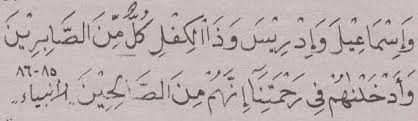 وَإِسْمَاعِيلَ وَإِدْرِيسَ وَذَا الْكِفْلِ كُلٌّ مِّنَ الصَّابِرِينَ
وَأَدْخَلْنٰهُمْ فِي رَحْمَتِنَآ إِنَّهُمْ مِنَ الصَّالِحِيْنَ ٨٥-٨٦ الأنبياء